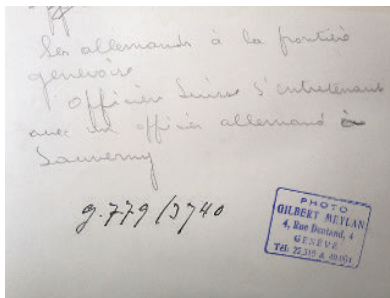 Les allemands à la frontière
genevoise
Officier Suisse s'entretenant
avec un officier allemand à
Sauverny
g.779/3740
PHOTO
GILBERT MEYLAN
4, Rue Dentand, 4
GENÈVE
Tél: 27,315 &